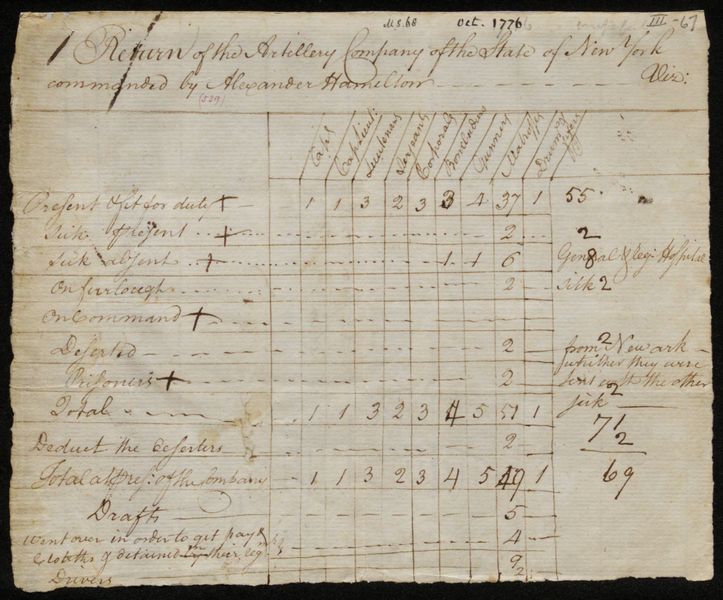 M.S. 68 Oct. 1776 III -67
Return of the Artillery Company of the State of New York
commanded by Alexander Hamilton Viz:
(529)
Capt Capt Lieut: Lieutenants Serjeants Corporals Bombardiers Gunners Matrosses Drums & fifers
Present & fit for duty + 1 1 3 2 3 3 4 37 1 55
Sick present + 2 2
Sick absent + 1 1 6 8 General & Reg: Hospital
On furlough 2 sick 2
On Command +
Deserted 2 2 from New ark
whither they were
Prisoners + 2 2 sent with the other
sick
Total 1 1 3 2 3 4 5 51 1 71
Deduct the deserters 2 2
Total at Pres: of the Company 1 1 3 2 3 4 5 49 1 69
Drafts 5
Went over in order to get pay & 4
Cloaths & detained in their reg
9
Drivers 2